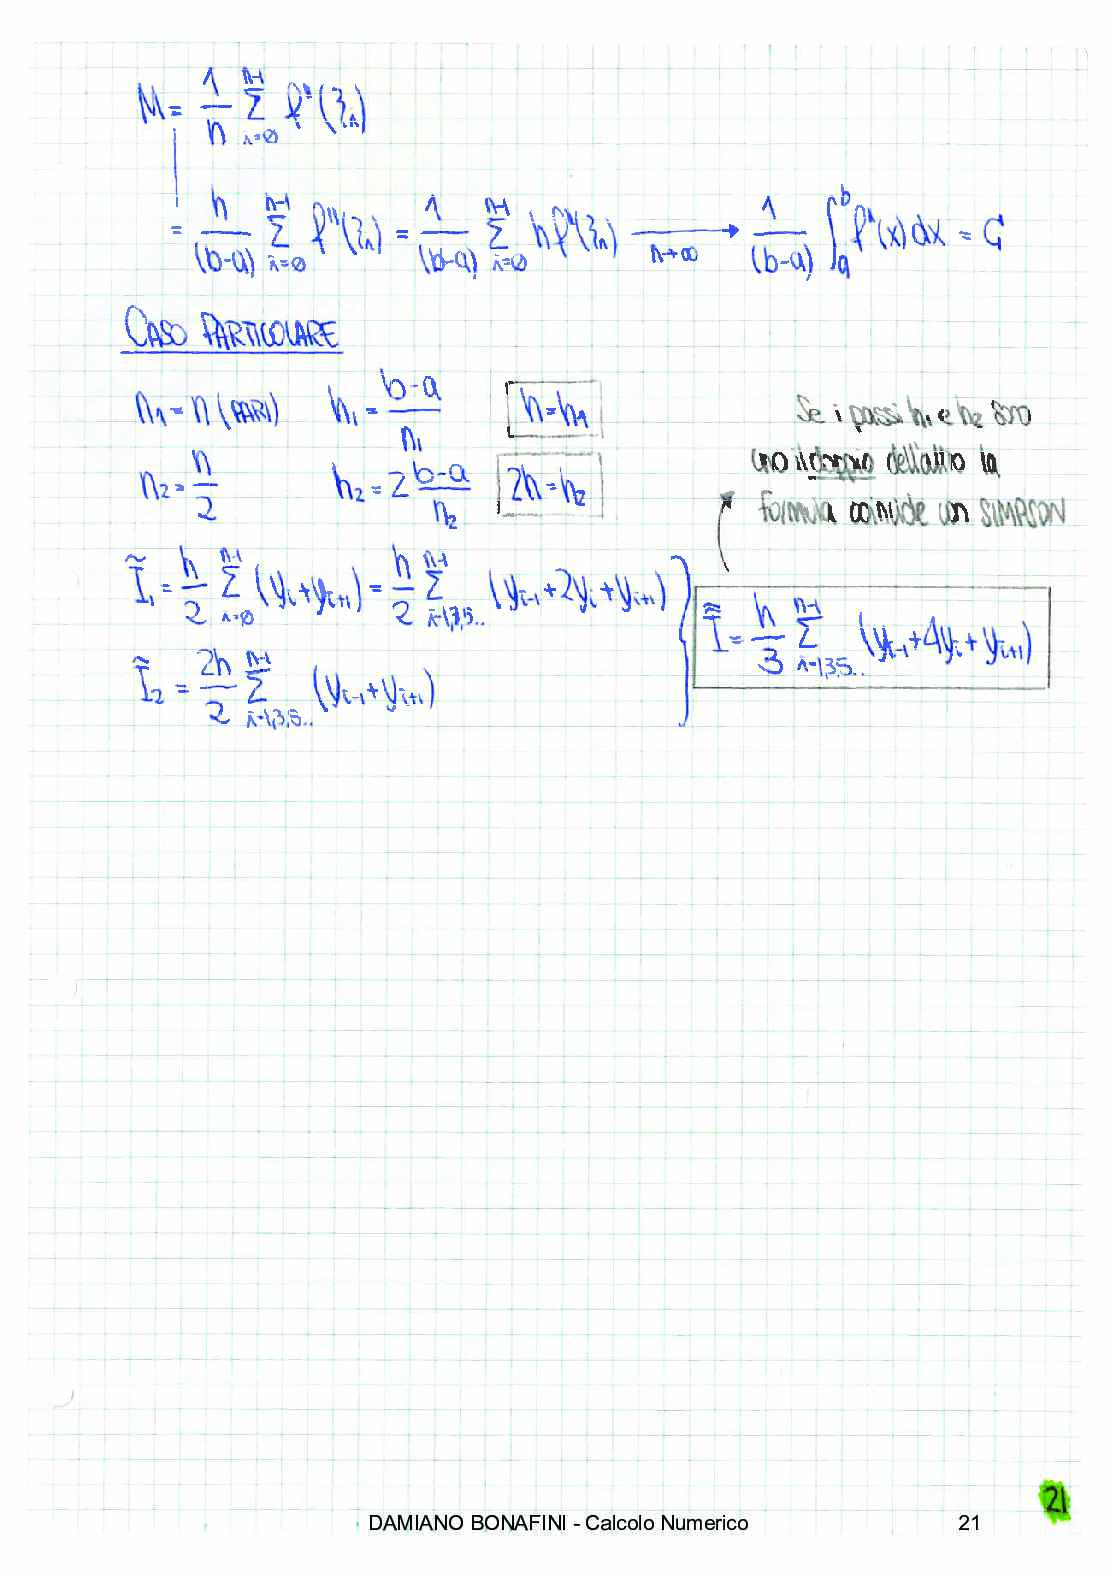 M = 1/n Σ_{i=0}^{n-1} f''(ξ_i)
= h/(b-a) Σ_{i=0}^{n-1} f''(ξ_i) = 1/(b-a) Σ_{i=0}^{n-1} h f''(ξ_i) ⟶_{n→∞} 1/(b-a) ∫_a^b f''(x) dx = G
CASO PARTICOLARE
n₁ = n (PARI) h₁ = (b-a)/n₁ h = h₁
n₂ = n/2 h₂ = 2 (b-a)/n₂ 2h = h₂
Se i passi h₁ e h₂ sono
uno il doppio dell'altro la
formula coincide con SIMPSON
Ĩ₁ = h/2 Σ_{i=0}^{n-1} (y_i + y_{i+1}) = h/2 Σ_{i=1,3,5..}^{n-1} (y_{i-1} + 2y_i + y_{i+1})
Ĩ₂ = 2h/2 Σ_{i=1,3,5..}^{n-1} (y_{i-1} + y_{i+1})
Ĩ̃ = h/3 Σ_{i=1,3,5..}^{n-1} (y_{i-1} + 4y_i + y_{i+1})
21
DAMIANO BONAFINI - Calcolo Numerico 21